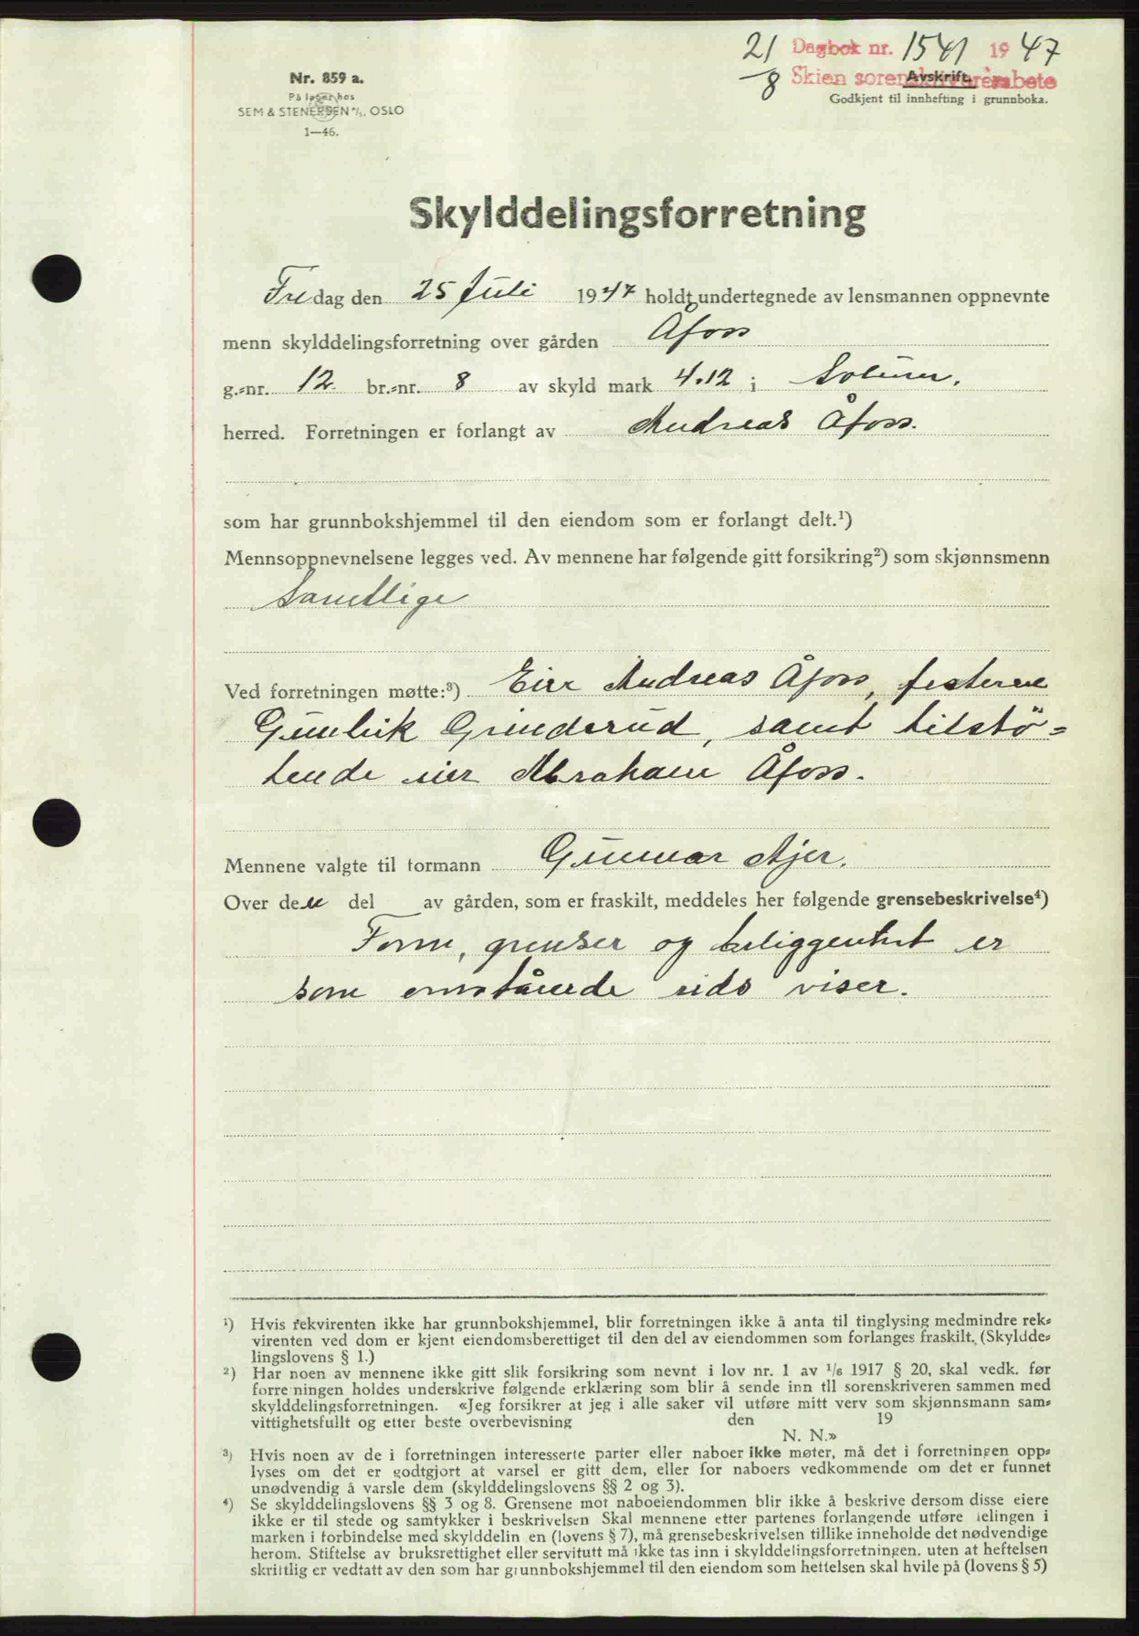 21/8 Dagbok nr. 1541 1947
Skien sorenskriverembete
Avskrift.
Godkjent til innhefting i grunnboka.
Nr. 859 a.
På lager hos
SEM & STENERSEN A/S, OSLO
1—46.
Skylddelingsforretning
Fredag den 25 Juli 1947 holdt undertegnede av lensmannen oppnevnte
menn skylddelingsforretning over gården Åfoss
g.-nr. 12 br.-nr. 8 av skyld mark 4.12 i Solum.
herred. Forretningen er forlangt av Andreas Åfoss.
som har grunnbokshjemmel til den eiendom som er forlangt delt.¹)
Mennsoppnevnelsene legges ved. Av mennene har følgende gitt forsikring²) som skjønnsmenn
Samtlige
Ved forretningen møtte:³) Eier Andreas Åfoss, festeren
Gunleik Grinderud, samt tilstø=
tende eier Abraham Åfoss.
Mennene valgte til formann Gunnar Ajer.
Over den del av gården, som er fraskilt, meddeles her følgende grensebeskrivelse⁴)
Form, grenser og beliggenhet er
som omstående rids viser.
¹) Hvis rekvirenten ikke har grunnbokshjemmel, blir forretningen ikke å anta til tinglysing medmindre rek-
virenten ved dom er kjent eiendomsberettiget til den del av eiendommen som forlanges fraskilt. (Skyldde-
lingslovens § 1.)
²) Har noen av mennene ikke gitt slik forsikring som nevnt i lov nr. 1 av ¹/₆ 1917 § 20, skal vedk. før
forre ningen holdes underskrive følgende erklæring som blir å sende inn tll sorenskriveren sammen med
skylddelingsforretningen. «Jeg forsikrer at jeg i alle saker vil utføre mitt verv som skjønnsmann sam-
vittighetsfullt og etter beste overbevisning den 19
N. N.»
³) Hvis noen av de i forretningen interesserte parter eller naboer ikke møter, må det i forretningen opp-
lyses om det er godtgjort at varsel er gitt dem, eller for naboers vedkommende om det er funnet
unødvendig å varsle dem (skylddelingslovens §§ 2 og 3).
⁴) Se skylddelingslovens §§ 3 og 8. Grensene mot naboeiendommen blir ikke å beskrive dersom disse eiere
ikke er til stede og samtykker i beskrivelsen Skal mennene etter partenes forlangende utføre delingen i
marken i forbindelse med skylddelin en (lovens § 7), må grensebeskrivelsen tillike inneholde det nødvendige
herom. Stiftelse av bruksrettighet eller servitutt må ikke tas inn i skylddelingsforretningen. uten at heftelsen
skriftlig er vedtatt av den som har grunnbokshjemmel til den eiendom som heftelsen skal hvile på (lovens § 5)